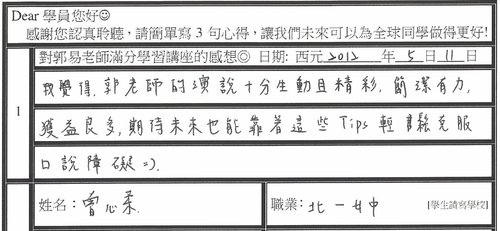 Dear 學員您好◎
感謝您認真聆聽，請簡單寫 3 句心得，讓我們未來可以為全球同學做得更好!
對郭易老師滿分學習講座的感想◎ 日期: 西元 2012 年 5 日 11 日
1
我覺得,郭老師的演說十分生動且精彩,簡潔有力,
獲益良多,期待未來也能靠著這些Tips輕鬆克服
口說障礙=).
姓名：曾心柔.
職業：北一女中 [學生請寫學校]